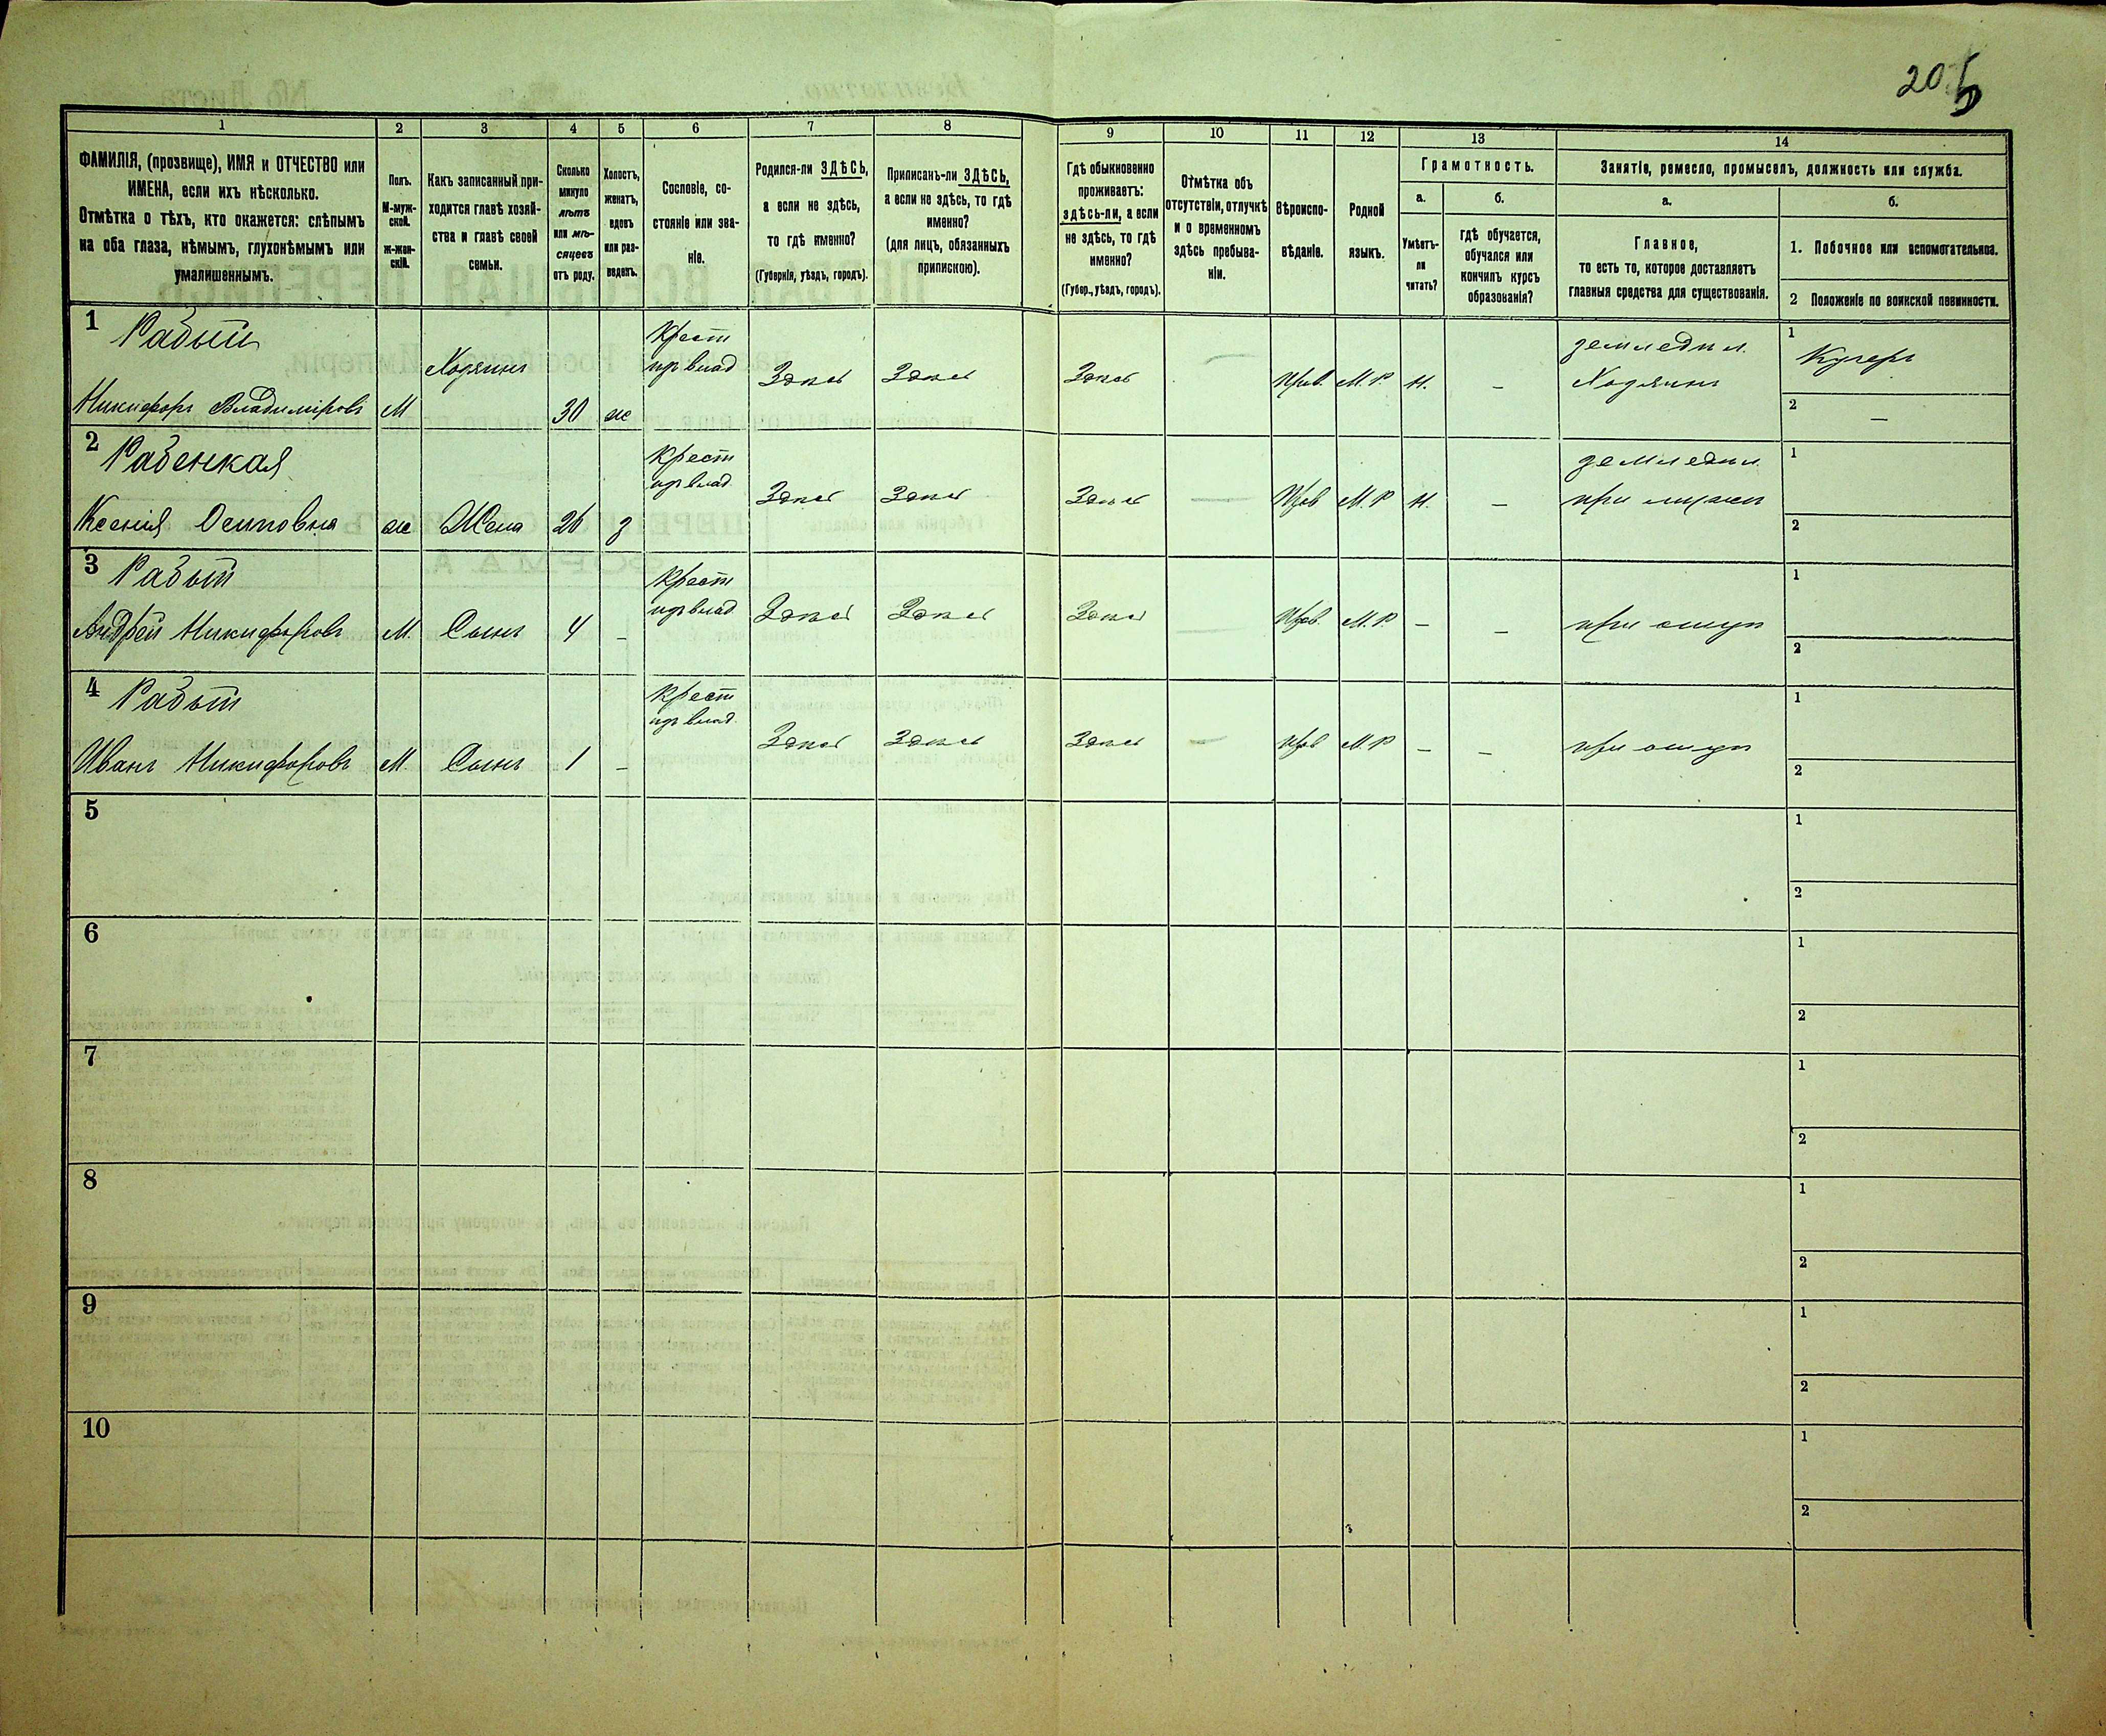 205
1
2
3
4
5
6
7
8
9
10
11
12
13
14
ФАМИЛІЯ, (прозвище), ИМЯ и ОТЧЕСТВО или
ИМЕНА, если ихъ нѣсколько.
Отмѣтка о тѣхъ, кто окажется: слѣпымъ
на оба глаза, нѣмымъ, глухонѣмымъ или
умалишеннымъ.
Полъ.
М-муж-
ской.
ж-жен-
скій.
Какъ записанный при-
ходится главѣ хозяй-
ства и главѣ своей
семьи.
Сколько
минуло
лѣтъ
или мѣ-
сяцевъ
отъ роду.
Холостъ,
женатъ,
вдовъ
или раз-
веденъ.
Сословіе, со-
стояніе или зва-
ніе.
Родился-ли ЗДѢСЬ,
а если не здѣсь,
то гдѣ именно?
(Губернія, уѣздъ, городъ).
Приписанъ-ли ЗДѢСЬ,
а если не здѣсь, то гдѣ
именно?
(для лицъ, обязанныхъ
припискою).
Гдѣ обыкновенно
проживаетъ:
здѣсь-ли, а если
не здѣсь, то гдѣ
именно?
(Губер., уѣздъ, городъ).
Отмѣтка объ
отсутствіи, отлучкѣ
и о временномъ
здѣсь пребыва-
ніи.
Вѣроиспо-
вѣданіе.
Родной
языкъ.
Грамотность.
а.
Умѣетъ-
ли
читать?
б.
гдѣ обучается,
обучался или
кончилъ курсъ
образованія?
Занятіе, ремесло, промыселъ, должность или служба.
а.
Главное,
то есть то, которое доставляетъ
главныя средства для существованія.
б.
1. Побочное или вспомогательное.
2 Положеніе по воинской повинности.
1 Рабый Крест земледѣл. 1 Кучеръ
Хозяинъ изъ влад Здѣсь Здѣсь Здѣсь — Прав. М. Р. Н. — Хозяинъ
Никифоръ Владиміровъ М 30 ж 2 —
2 Рабенкая Крест земледѣл. 1
изъ влад. Здѣсь Здѣсь Здѣсь — Прав М. Р Н. — при мужѣ
Ксенія Осиповна ж Жена 26 з 2
3 Рабый Крест 1
изъ влад Здѣсь Здѣсь Здѣсь — Прав. М. Р. — — при отцѣ
Андрей Никифоровъ М. Сынъ 4 — 2
4 Рабый Крест 1
изъ влад. Здѣсь Здѣсь Здѣсь — Прав М. Р — — при отцѣ
Иванъ Никифоровъ М. Сынъ 1 — 2
5 1
2
6 1
2
7 1
2
8 1
2
9 1
2
10 1
2